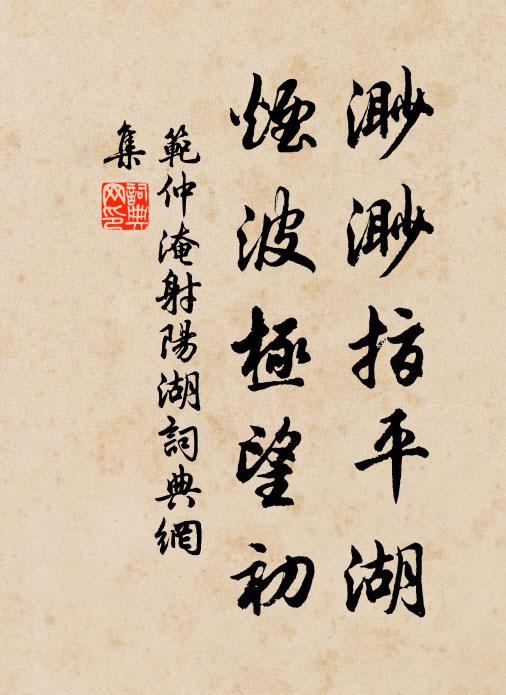 渺渺指平湖
煙波極望初
範仲淹射陽湖詞典網
集
詞典
网印